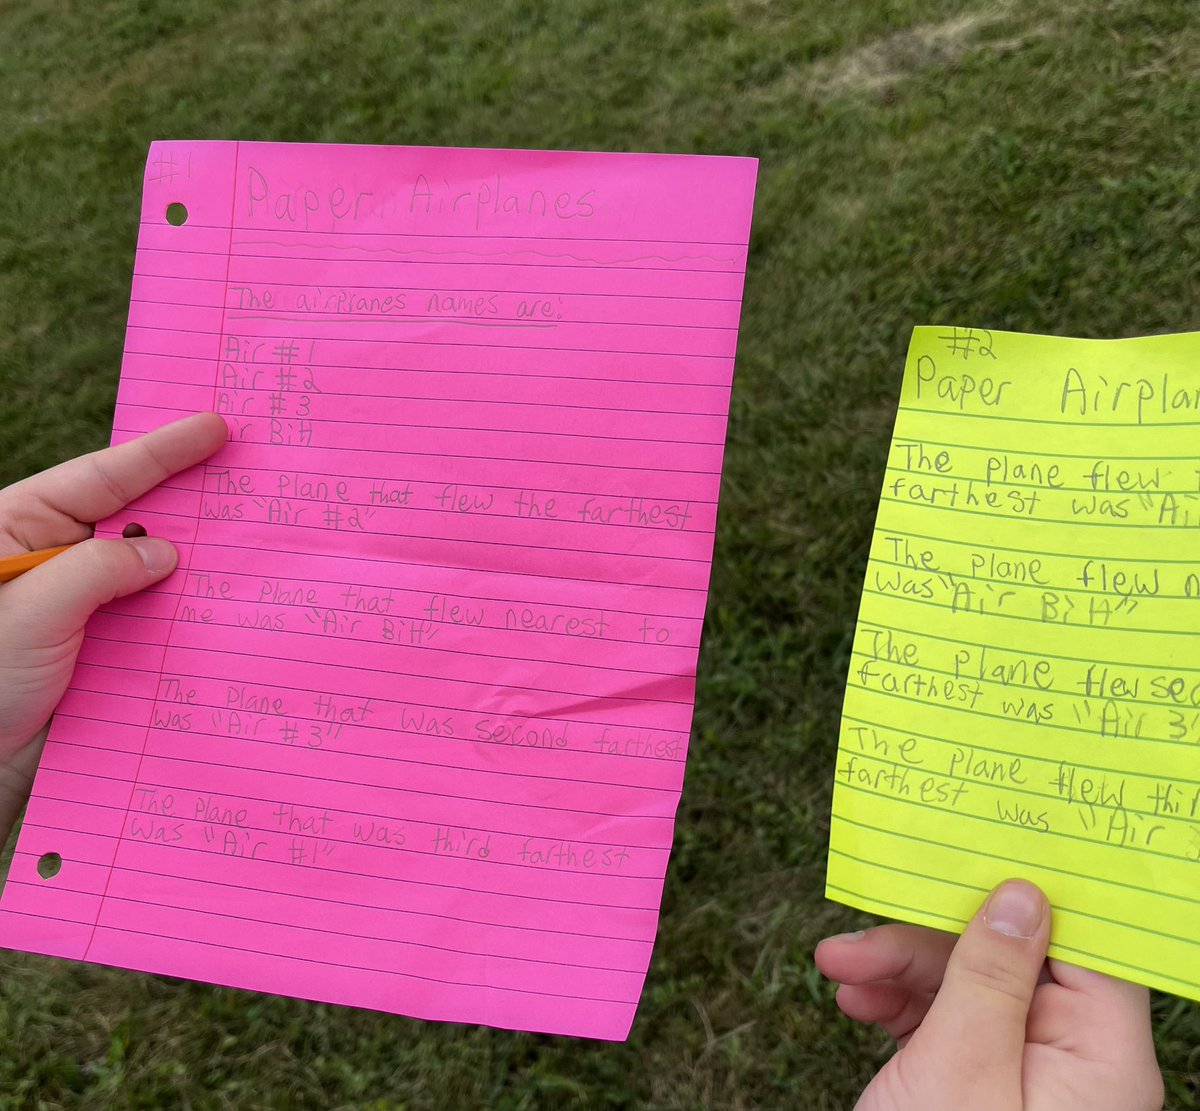 #1
Paper Airplanes
The airplanes names are:
Air #1
Air #2
Air #3
Air BitH
The plane that flew the farthest
was "Air #2"
The plane that flew nearest to
me was "Air BitH"
The plane that was second farthest
was "Air #3"
The plane that was third farthest
was "Air #1"
#2
Paper Airplan
The plane flew
farthest was "Ai
The plane flew n
was "Air BitH"
The plane flew sec
farthest was "Air 3"
The plane flew thi
farthest was "Air